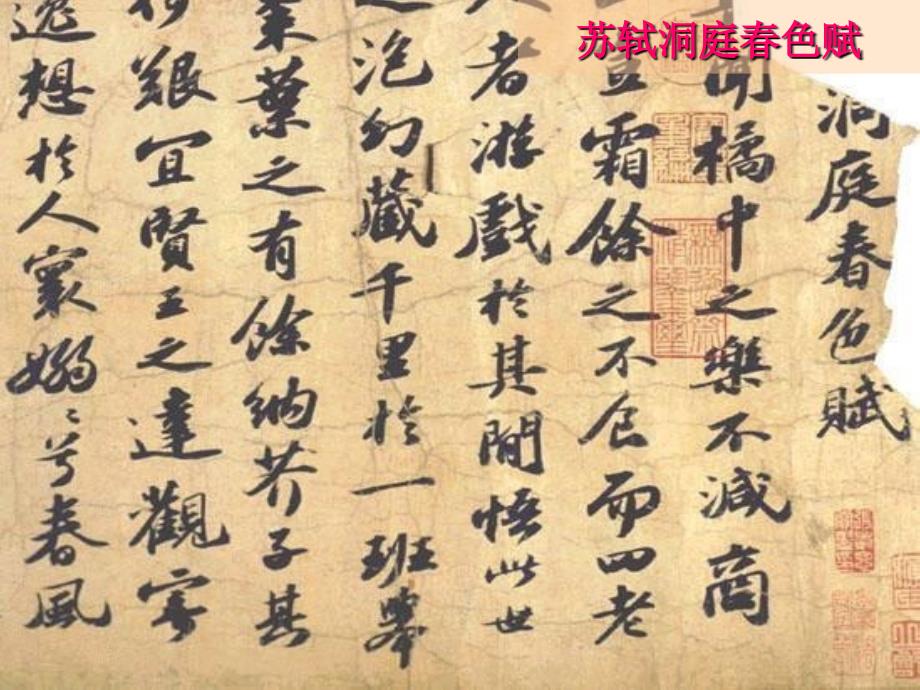 苏轼洞庭春色赋
洞庭春色賦
聞橘中之樂不減商
豈霜餘之不食而四老
人者游戲於其閒悟此世
之泡幻藏千里於一班舉
棗葉之有餘納芥子其
何艱宜賢王之達觀寄
逸想於人寰嫋〻兮春風